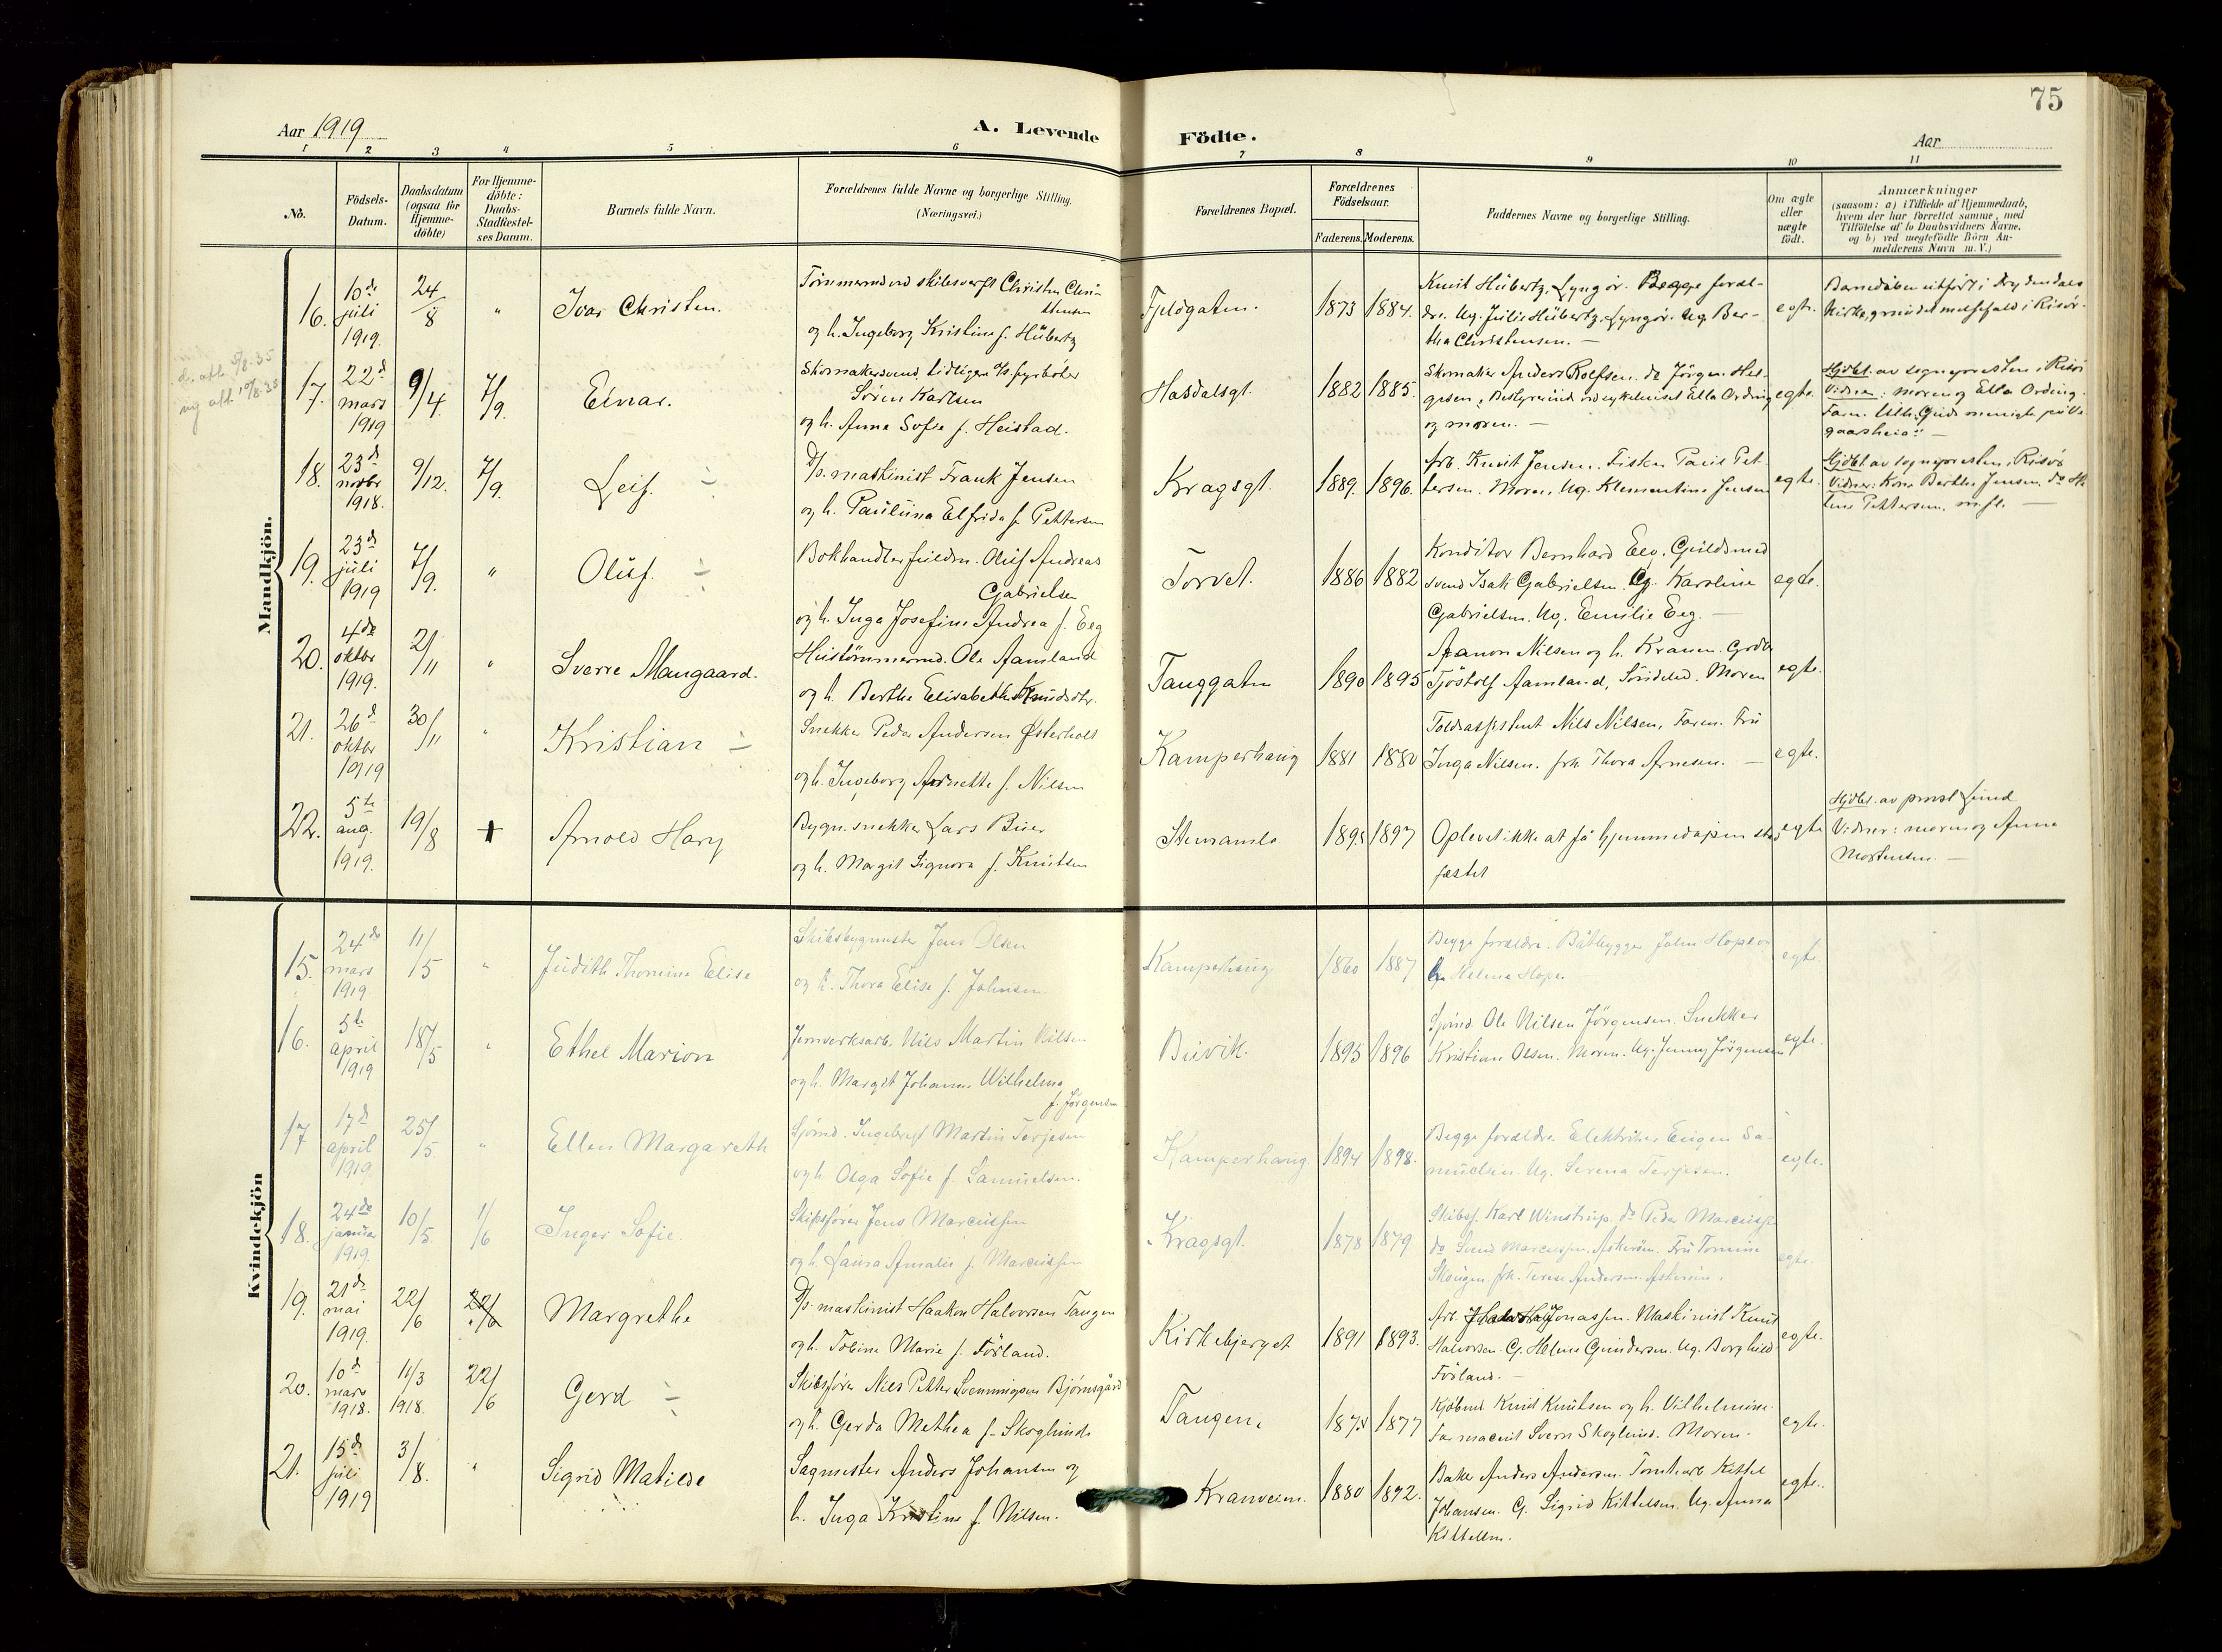 75
Aar 1919
A. Levende Födte.
Aar
1 2 3 4 5 6 7 8 9 10 11
No.
Födsels-
Datum.
Daabsdatum
(ogsaa for
Hjemme-
döbte)
For Hjemme-
döbte:
Daabs-
Stadfæstel-
ses Datum.
Barnets fulde Navn.
Forældrenes fulde Navne og borgerlige Stilling.
(Næringsvei.)
Forældrenes Bopæl.
Forældrenes
Födselsaar.
Faderens. Moderens.
Faddernes Navne og borgerlige Stilling.
Om ægte
eller
uægte
födt.
Anmærkninger
(saasom: a) i Tilfælde af Hjemmedaab,
hvem der har forrettet samme, med
Tilföielse af to Daabsvidners Navne.
og b) ved uegtefödte Börn An-
melderens Navn m. V.)
Mandkjön.
16.
10de
juli
1919.
24/8
"
Ivar Christen.
Tömmermd ved skibsverft Christen Chri-
stensen
og h. Ingeborg Kristine f. Hübertz
Fjeldgaten.
1873 1884.
Knut Hübertz, Lyngör. Begge foræl-
dre. Ug. Julie Hübertz, Lyngör. Ug. Ber-
tha Christensen. —
egte.
Barnedåben utfört i
kirke, grundet i Risör.
17.
22d
mars
1919
9/4
7/9.
Einar.
Skomakersvend, tidligere D/s. fyrböter
Sören Karlsen
og h. Anna Sofie f. Heistad.
Hasdalsgt.
1882 1885.
Skomaker Anders Rolfsen. do Jörgen Hel-
gesen, Bestyrerinde Ella Ording
og moren. —
egte.
Hjdbt. av sognepresten i Risör
Vidner: moren og Ella Ording.
18.
23d
novbr
1918.
9/12.
7/9.
Leif. ÷
D/s. maskinist Frank Jensen
og h. Pauline Elfrida f. Pettersen
Kragsgt.
1889. 1896.
Arb. Knut Jensen. Fisker Paul Pet-
tersen. Moren. Ug. Klementine Jensen
egte.
Hjdbt. av sognepresten i Risör
Vidner: Kone Berthe Jensen. do
Pettersen. m. fl. —
19.
23d
juli
1919
7/9.
"
Oluf. ÷
Bokhandlerfuldm. Oluf Andreas
Gabrielsen
og h. Inga Josefine Andrea f. Eeg
Torvet.
1886 1882
Konditor Bernhard Eeg. Guldsmed
svend Isak Gabrielsen. G. Karoline
Gabrielsen. Ug. Emilie Eeg. —
egte.
20.
4de
oktbr
1919.
2/11
"
Sverre Maugaard.
Hustömmermd. Ole Aamland
og h. Berthe Elisabeth Knudsdtr.
Tanggaten
1890 1895
Aanon Nilsen og h. Kranen. Grdbr
Tjöstolf Aamland, Söndeled. Moren
egte.
21.
26d
oktbr
1919
30/11
"
Kristian ÷
Snekker Peder Andersen Østerholt
og h. Ingeborg Arnette f. Nilsen
Kamperhaug
1881 1880
Toldassistent Nils Nilsen, Faren. Fru
Inga Nilsen. frk. Thora Arnesen. —
egte.
22.
5te
aug.
1919.
19/8
Arnold Hary
Bygn. snekker Lars Buer
og h. Margit Signora f. Knutsen
Stenramla
1895 1897
Oplevet ikke at få hjemmedåpen stad-
fæstet
egte
Hjdbt. av prost Lund
Vidner: moren og Anna
Mortensen. —
Kvindekjön
15.
24de
mars
1919
11/5
"
Judith Thomine Elise
Skibsbygmester Jens Olsen
og h. Thora Elise f. Johnsen.
Kamperhaug
1860 1887
Begge forældre. Båtbygger John Hope og
h. Helene Hope.
egte.
16.
5te
april
1919
18/5
"
Ethel Marion
Jernverksarb. Nils Martin Nilsen
og h. Margit Johanne Wilhelmine
f. Jörgensen
Buvik.
1895 1896
Sjömd. Ole Nilsen Jörgensen. Snekker
Kristian Olsen. Moren. Ug. Jenny Jörgensen
egte.
17
17d
april
1919.
25/5.
"
Ellen Margareth
Sjömd. Ingebregt Martin Terjesen
og h. Olga Sofie f. Samuelsen.
Kamperhaug
1894 1898.
Begge forældre. Elektriker Eugen Sa-
muelsen. Ug. Serena Terjesen.
egte.
18.
24de
januar
1919.
10/5.
1/6
Inger Sofie.
Skipsförer Jens Marcussen
og h. Laura Amalie f. Marcussen
Kragsgt.
1878 1879
Skibsf. Karl Winstrup. do Peder Marcussen
do Svend Marcussen. Askeröen. Fru Tomine
Skougen frk. Terese Andersen. Askeröen.
egte.
19.
21de
mai
1919.
22/6
22/6
Margrethe
D/s. maskinist Haakon Halvorsen Tangen
og h. Tobine Marie f. Förland.
Kirkebjerget
1891 1893.
Arb. Jonassen. Maskinist Knut
Halvorsen. G. Helene Gundersen. Ug. Borghild
Förland. —
egte.
20.
10d
mars
1918.
11/3
1918.
22/6
Gerd ÷
Skibsförer Nils Petter Svenningsen Bjørnsgård
og h. Gerda Methea f. Skoglund
Tangen,
1875 1877
Kjöbmd. Knut Knutsen og h. Vilhelmine.
Farmaceut Svern Skoglund. Moren.
egte.
21.
15d
juli
1919
3/8.
"
Sigrid Matilde
Sagmester Anders Johansen og
h. Inga Kristine f. Nilsen.
Kranveien.
1880 1892.
Baker Anders Andersen. Tomtearb Kittel
Johansen. G. Sigrid Kittelsen. Ug. Anna
Kittelsen.
egte.